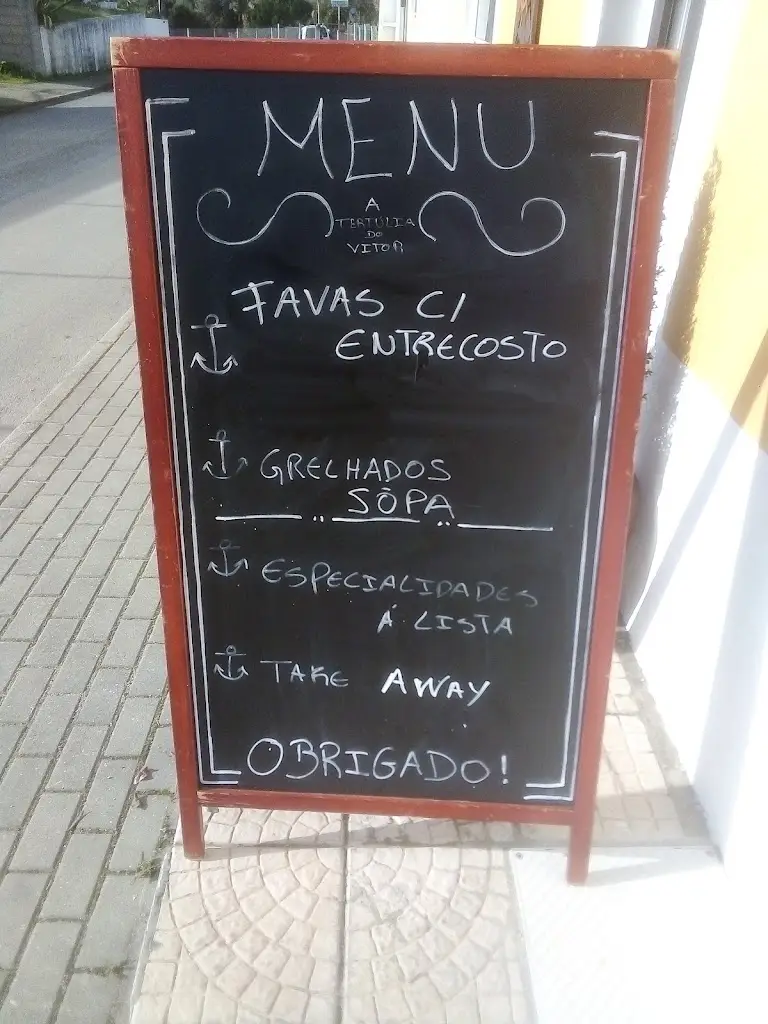 MENU
A
TERTÚLIA
DO
VITOR
FAVAS C/
ENTRECOSTO
GRELHADOS
SÓPA
ESPECIALIDADES
Á LISTA
TAKE AWAY
OBRIGADO!